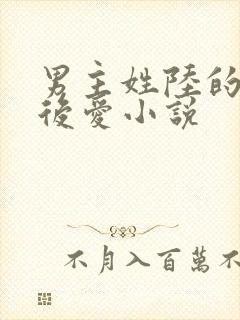 男主姓陸的
後愛小説
不月入百萬不